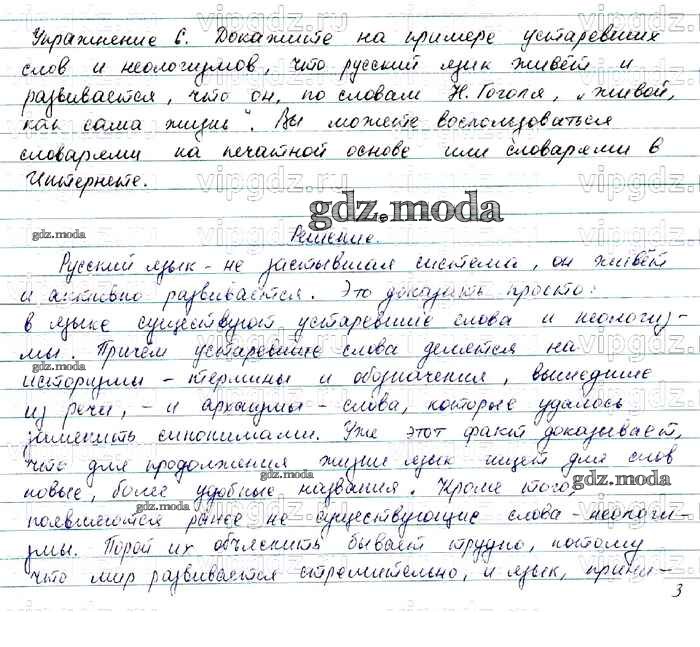 Упражнение 6. Докажите на примере устаревших
слов и неологизмов, что русский язык живёт и
развивается, что он, по словам Н. Гоголя, „живой,
как сама жизнь". Вы можете воспользоваться
словарями на печатной основе или словарями в
Интернете.
gdz.moda
gdz.moda
Решение.
Русский язык - не застывшая система, он живёт
и активно развивается. Это доказать просто:
в языке существуют устаревшие слова и неологиз-
мы. Причём устаревшие слова делятся на
историзмы - термины и обозначения, вышедшие
из речи, - и архаизмы - слова, которые удалось
заменить синонимами. Уже этот факт доказывает,
что для продолжения жизни язык ищет для слов
gdz.moda
gdz.moda
новые, более удобные названия. Кроме того,
gdz.moda
появляются ранее не существующие слова - неологи-
змы. Порой их объяснить бывает трудно, потому
что мир развивается стремительно, и язык, прини-
3